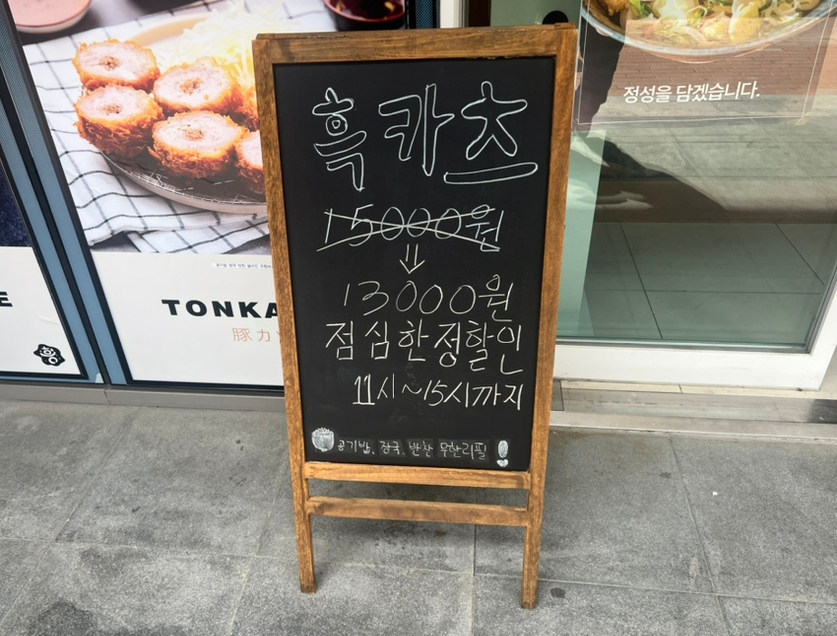 흑카츠
15000원
⇓
13000원
점심한정할인
11시~15시까지
공기밥, 장국, 반찬 무한리필!
정성을 담겠습니다.
TONKA
豚カ
E